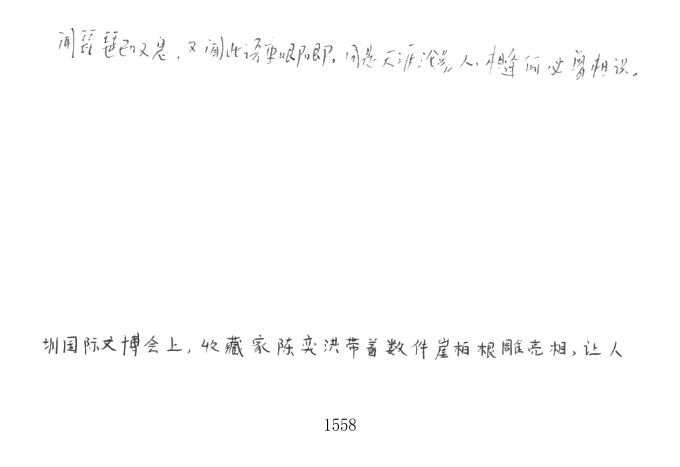 闻琵琶已叹息,又闻此语重唧唧。同是天涯沦落人,相逢何必曾相识。
圳国际文博会上,收藏家陈奕洪带着数件崖柏根雕亮相,让人
1558